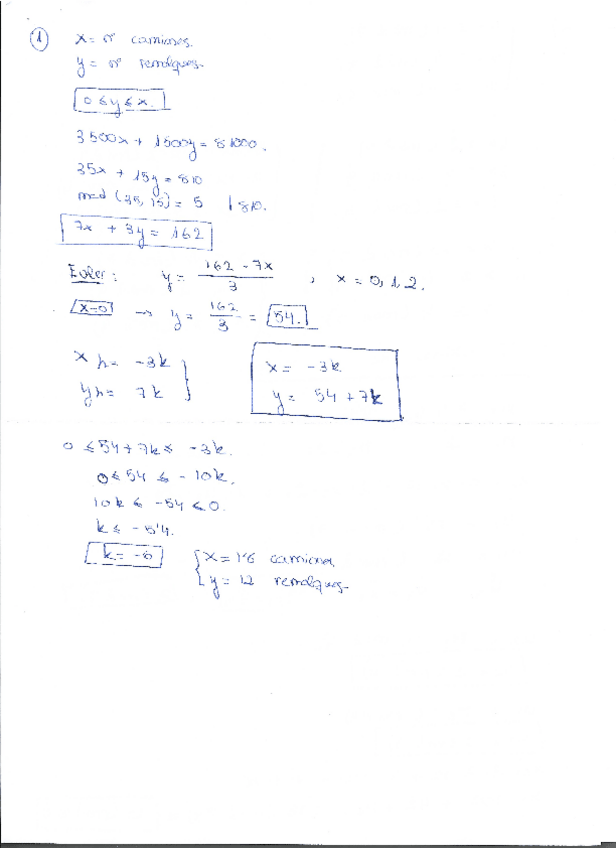 1 x = nº camiones.
y = nº remolques.
0 ≤ y ≤ x.
3500x + 1500y = 81000.
35x + 15y = 810
mcd (35, 15) = 5 | 810.
7x + 3y = 162
Euler: y = (162 - 7x)/3 , x = 0, 1, 2.
x=0 → y = 162/3 = 54.
x h = -3k
y h = 7k
x = -3k
y = 54 + 7k
0 ≤ 54 + 7k ≤ -3k.
0 ≤ 54 ≤ -10k.
10k ≤ -54 < 0.
k ≤ -5'4.
k = -6
x = 18 camiones
y = 12 remolques.